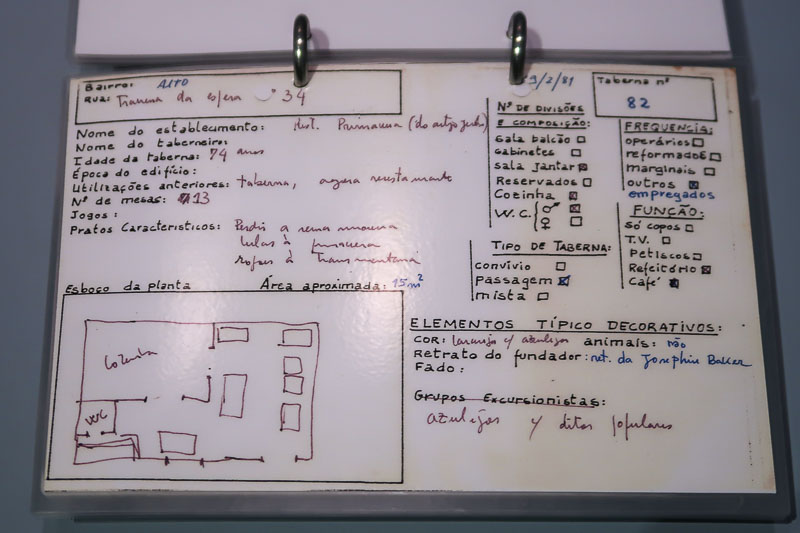 Bairro: ALTO
RUA: Travessa da esfera nº 34
9/2/81
Taberna nº
82
Nome do establecimento: Rest. Primavera (do antigo
Nome do taberneiro:
Idade da taberna: 74 anos
Época do edifício:
Utilizações anteriores: taberna, agora restaurante
Nº de mesas: 13
Jogos:
Pratos Característicos: Perdiz a
lulas à primavera
sopas à transmontana
Nº DE DIVISÕES
E COMPOSIÇÃO:
Sala balcão □
Gabinetes □
Sala Jantar ☒
Reservados □
Cozinha ☒
W.C. { ♂ ☒
♀ □
FREQUENCIA:
operários □
reformados □
marginais □
outros ☒
empregados
FUNÇÃO:
Só copos □
T.V. □
Petiscos □
Refeitório ☒
Café ■
TIPO DE TABERNA:
Convívio □
Passagem ☒
mista □
Esboço da planta
Área aproximada: 15 m²
Cozinha
WC
ELEMENTOS TÍPICO DECORATIVOS:
COR: laranja c/ azulejos animais: não
Retrato do fundador: ret. da Josephin Baker
Fado:
Grupos Excursionistas:
azulejos c/ ditos populares